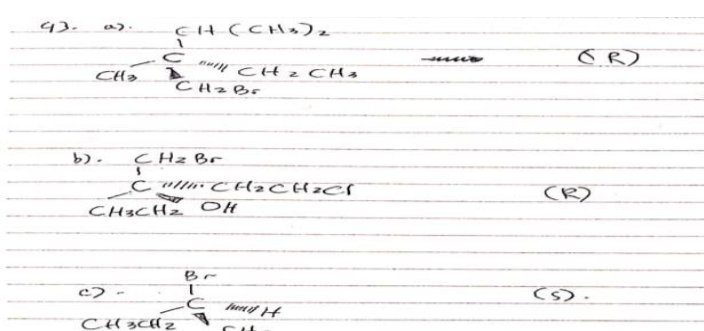 43. a). CH(CH3)2
C
CH3 CH2CH3 (R)
CH2Br
b). CH2Br
C CH2CH2Cl
CH3CH2 OH (R)
Br
c) - (S).
C H
CH3CH2